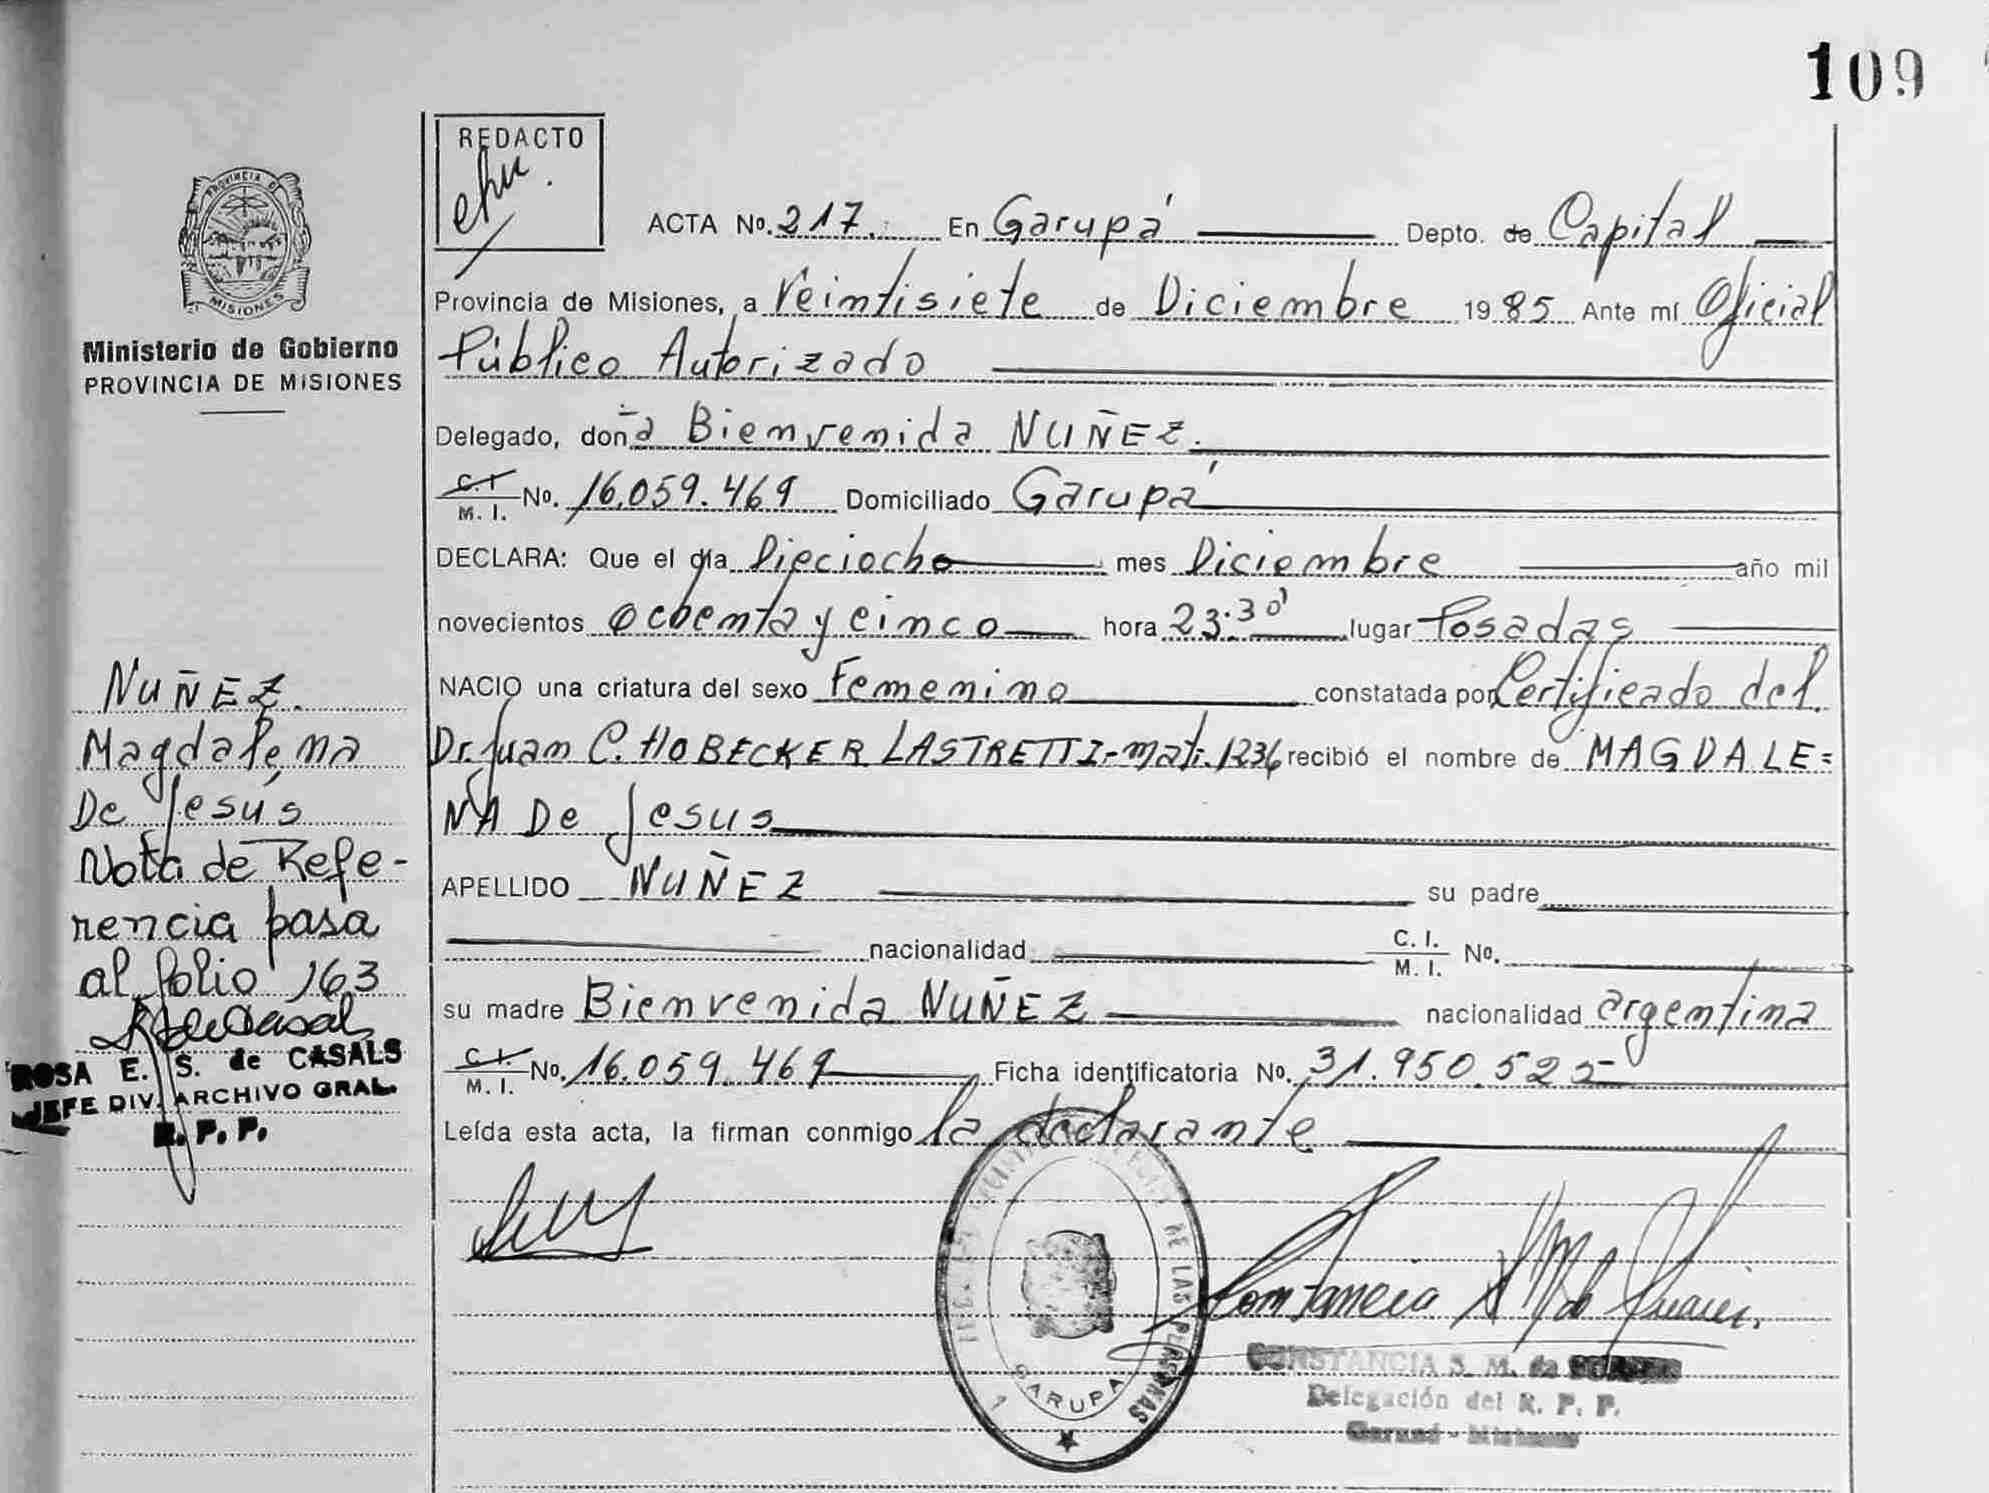 109
REDACTO
PROVINCIA DE
MISIONES
Ministerio de Gobierno
PROVINCIA DE MISIONES
ACTA Nº. 217. En Garupá Depto. de Capital
Provincia de Misiones, a Veintisiete de Diciembre 1985 Ante mí Oficial
Público Autorizado
Delegado, doña Bienvenida NUÑEZ.
C.I. M. I. Nº. 16.059.469 Domiciliado Garupá
DECLARA: Que el día Dieciocho mes Diciembre año mil
novecientos Ochenta y cinco hora 23:30 lugar Posadas
NACIO una criatura del sexo Femenino constatada por Certificado del
Dr. Juan C. HOBECKER LASTRETTI - Mat. 1236 recibió el nombre de MAGDALE=
NA De Jesus
APELLIDO NUÑEZ su padre
nacionalidad C. I. M. I. Nº.
su madre Bienvenida NUÑEZ nacionalidad argentina
C.I. M. I. Nº. 16.059.469 Ficha identificatoria Nº. 31.950.525
Leída esta acta, la firman conmigo la declarante
NUÑEZ.
Magdalena
De Jesús
Nota de Refe-
rencia pasa
al folio 163
ROSA E. S. de CASALS
JEFE DIV. ARCHIVO GRAL.
R. P. P.
DE LAS PERSONAS
GARUPA
CONSTANCIA S. M. de
Delegación del R. P. P.
Garupá - Misiones